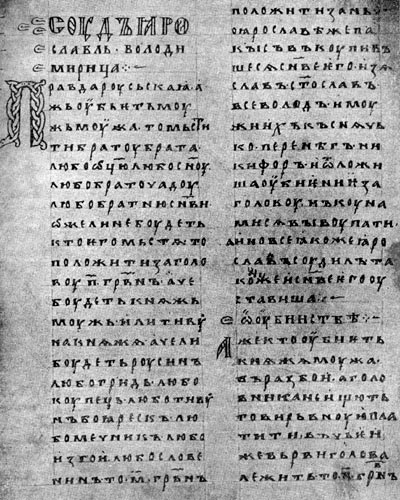 СОУДЪ ꙖРО
СЛАВЛЬ · ВОЛОДИ
МИРИЦА :~
ПРАВДА РОУСЬСКАꙖ · А
ЖЬ ОУБЬѤТЬ МОУ
ЖЬ МОУЖА · ТО МЬСТИ
ТИ БРАТОУ БРАТА
ЛЮБО ОЦ҃Ю ЛЮБО СН҃ОУ
ЛЮБО БРАТОУЧАДОУ
ЛЮБО БРАТНЮ СН҃ВИ
ѠЖЕ ЛИ НЕ БОУДЕТЬ
КТО ЕГО МЬСТѦ ТО
ПОЛОЖИТИ ЗА ГОЛО
ВОУ П҃ ГРВ҃НЪ АЧЕ
БОУДЕТЬ КНѦЖЬ
МОУЖЬ · ИЛИ ТИВУ
НА КНѦЖА АЧЕ ЛИ
БОУДЕТЬ РОУСИНЪ
ЛЮБО ГРИДЬ ЛЮБО
КОУПЕЦЬ ЛЮБО ТИВУ
НЪ БОꙖРЕСКЪ ЛЮ
БО МЕЧНИКЪ ЛЮБО
ИЗГОИ ЛЮБО СЛОВЕ
НИНЪ ТО М҃ ГРВ҃НЪ
ПОЛОЖИТИ ЗА НЬ ·
ПО ꙖРОСЛАВѢ ЖЕ ПА
КЫ СЪВЪКОУПИВЪ
ШЕСѦ СН҃ВЕ ѤГО ИЗѦ
СЛАВЪ СТ҃ОСЛАВЪ
ВСЕВОЛОДЪ И МОУ
ЖИ ИХЪ КЪСНѦЧЬ
КО · ПЕРЕНѢГЪ НИ
КИФОРЪ И ѠЛОЖИ
ША ОУБИѤНИѤ ЗА
ГОЛОВОУ НЪ КОУНА
МИ СѦ ВЫКОУПАТИ
А ИНО ВСЕ ꙖКОЖЕ ꙖРО
СЛАВЪ СОУДИЛЪ ТА
КОЖЕ И СН҃ВЕ ѤГО ОУ
СТАВИША :~
Ѡ ОУБИИСТВѢ :~
АЖЕ КТО ОУБИѤТЬ
КНѦЖА МОУЖА ·
ВЪ РАЗБОИ · А ГОЛО
ВНИКА НЕ ИЩЮТЬ
ТО ВИРЬВНОУЮ ПЛА
ТИТИ · ВЪ ЧЬѤИ
ЖЕ ВЬРВИ ГОЛОВА
ЛЕЖИТЬ ТО П҃ ГРВ҃НЪ